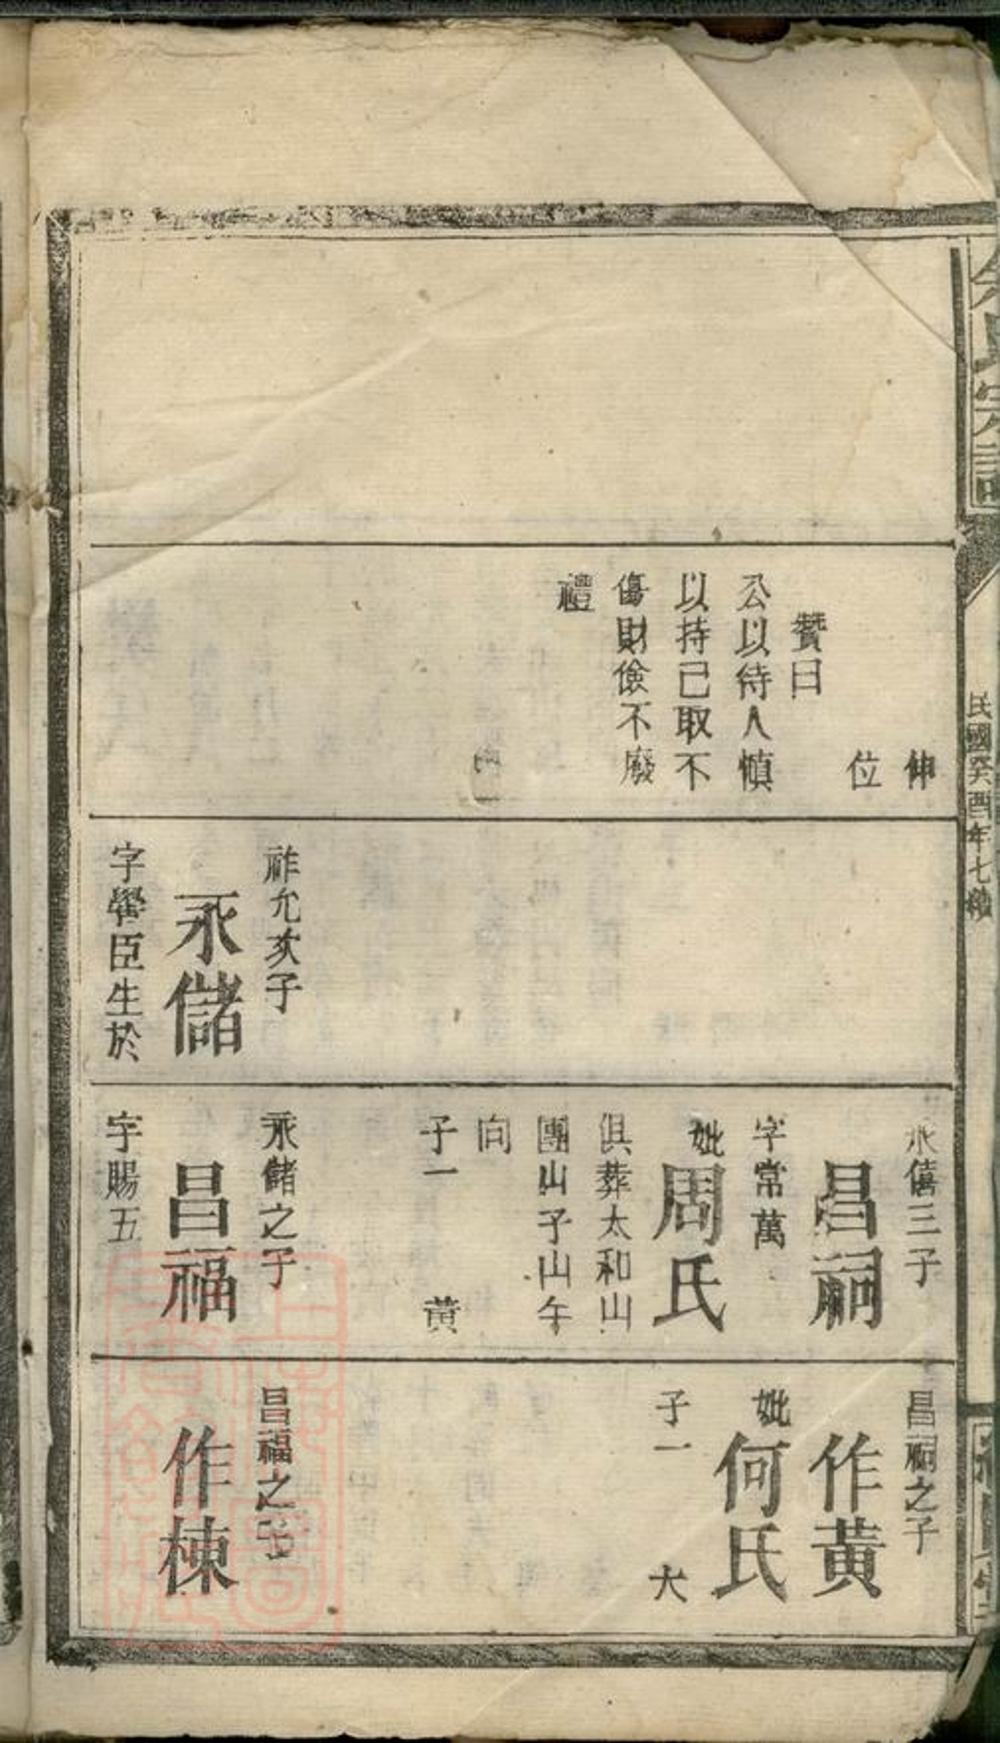 氏宗譜
民國癸酉年七續
伸
位
贊曰
公以待人慎
以持己取不
傷財儉不廢
禮
祚允亥子
永儲
字譽臣生於
永僖三子
昌嗣
字常萬
妣周氏
俱葬太和山
團山子山午
向
子一 黃
永儲之子
昌福
字賜五
昌嗣之子
作黃
妣何氏
子一 大
昌福之子
作棟